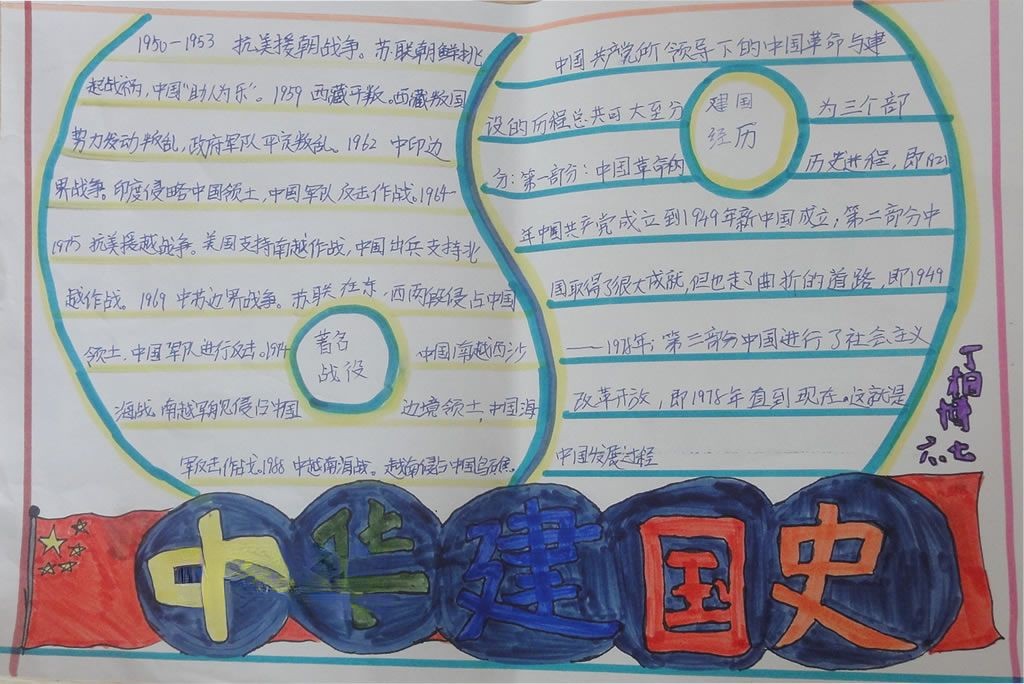 1950—1953 抗美援朝战争。苏联朝鲜挑
起战祸,中国“助人为乐”。1959 西藏平叛。西藏叛国
势力发动叛乱,政府军队平定叛乱。1962 中印边
界战争。印度侵略中国领土,中国军队反击作战。1964—
1975 抗美援越战争。美国支持南越作战,中国出兵支持北
越作战。1969 中苏边界战争。苏联在东、西两段侵占中国
领土,中国军队进行反击。1974 中国南越西沙
海战 南越军舰侵占中国 边境领土,中国海
军反击作战。1988 中越南海战。越南侵占中国岛礁。
著名
战役
中国共产党所领导下的中国革命与建
设的历程总共可大至分 为三个部
分:第一部分:中国革命的 历史进程,即1921
年中国共产党成立到1949年新中国成立;第二部分中
国取得了很大成就,但也走了曲折的道路,即1949
——1978年;第三部分中国进行了社会主义
改革开放,即1978年直到现在。这就是
中国发展过程
建国
经历
六.七
中华建国史